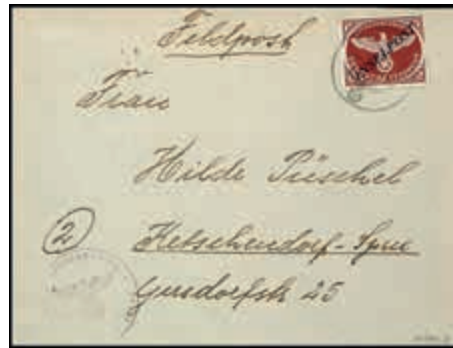 Feldpost
INSELPOST
Frau
Hilde Püschel
2
Ketschendorf-Spree
Gersdorfstr 25